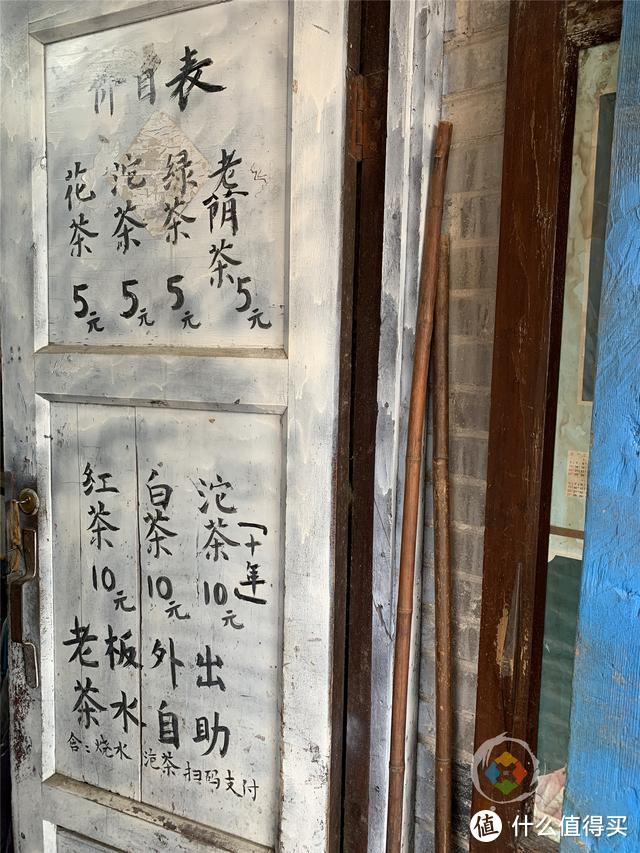 价目表
花茶 5元
沱茶 5元
绿茶 5元
老荫茶 5元
红茶 10元
白茶 10元
沱茶 10元
「十年」
老板外出
茶水自助
含：烧水 泡茶 扫码支付
值 什么值得买